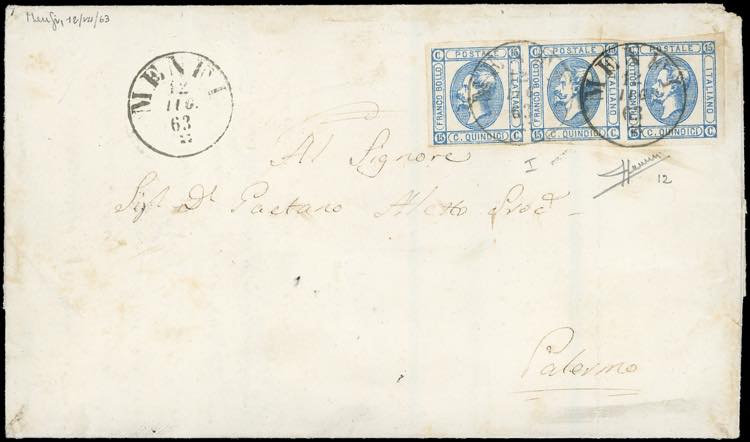 Menfi, 12/VII/63
MENFI
12
LUG.
63
C. POSTALE 15
FRANCO BOLLO
ITALIANO
15 C. QUINDICI C.
C. POSTALE 15
FRANCO BOLLO
ITALIANO
15 C. QUINDICI C.
C. POSTALE 15
FRANCO BOLLO
ITALIANO
15 C. QUINDICI C.
MENFI
12
LUG.
63
I
12
Al Signore
Sig. Dn Gaetano
Palermo